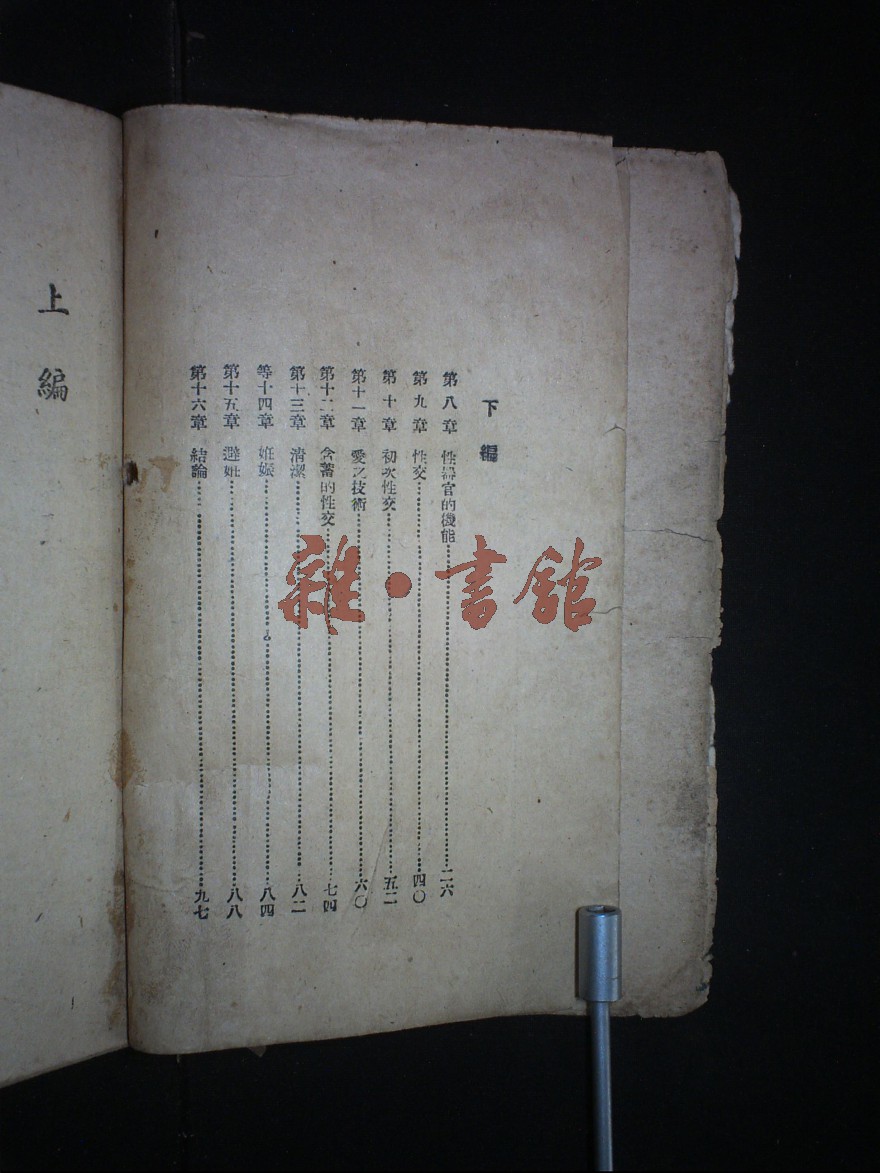 下編
第八章 性器官的機能 二六
第九章 性交 四〇
第十章 初次性交 五二
第十一章 愛之技術 六〇
第十二章 含蓄的性交 七四
第十三章 清潔 八二
等十四章 姙娠 八四
第十五章 避姙 八八
第十六章 結論 九七
上編
雜·書館